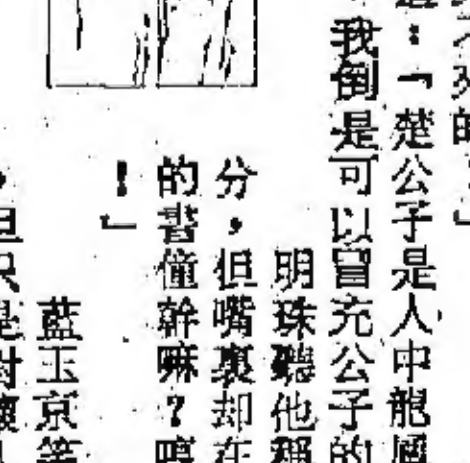 死的！」
：「楚公子是人中龍鳳
我倒是可以冒充公子的
明珠聽他稱
分，但嘴裏却在
的書僮幹嘛？哼
！」
藍玉京笑
，但只是對